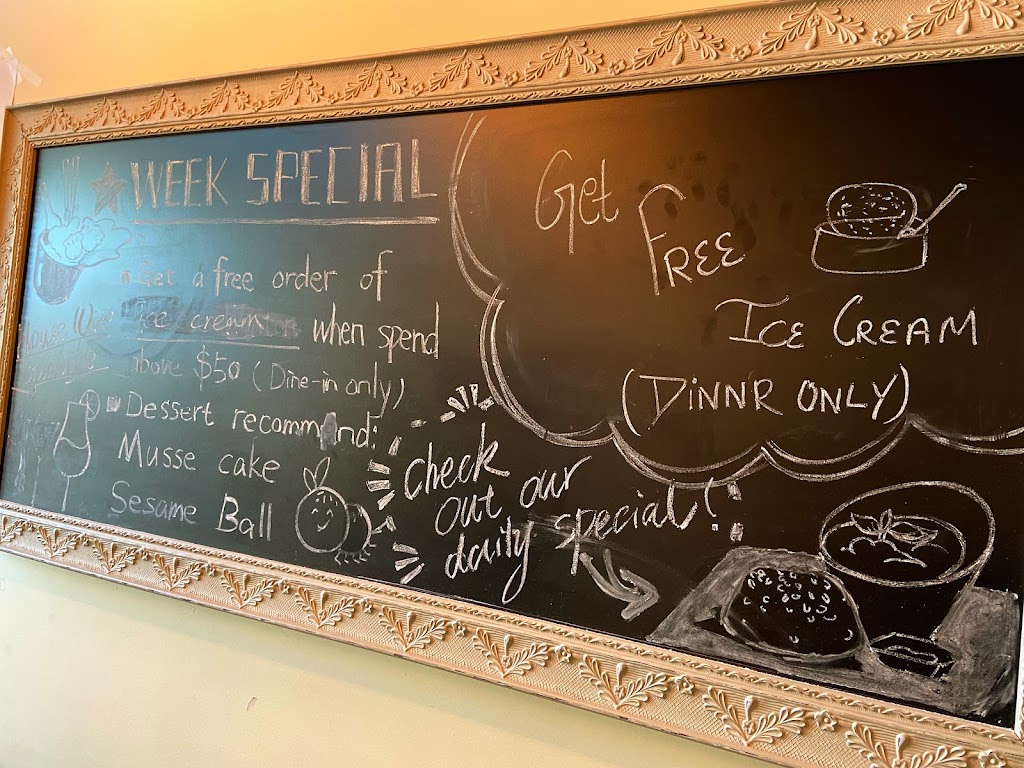 WEEK SPECIAL
Get a free order of
Ice cream when spend
above $50 (Dine-in only)
Dessert recommAnd:
Musse cake
Sesame Ball
Get
FREE
ICE CREAM
(DiNNR ONLY)
check
out our
daity special!